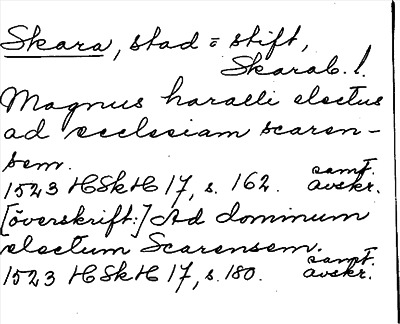 Skara, stad = stift,
Skarab. l.
Magnus haraldi electus
ad ecclesiam scaren-
sem.
1523 HSkH 17, s. 162. samt. avskr.
[överskrift:] Ad dominum
electum Scarensem.
1523 HSkH 17, s. 180. samt. avskr.